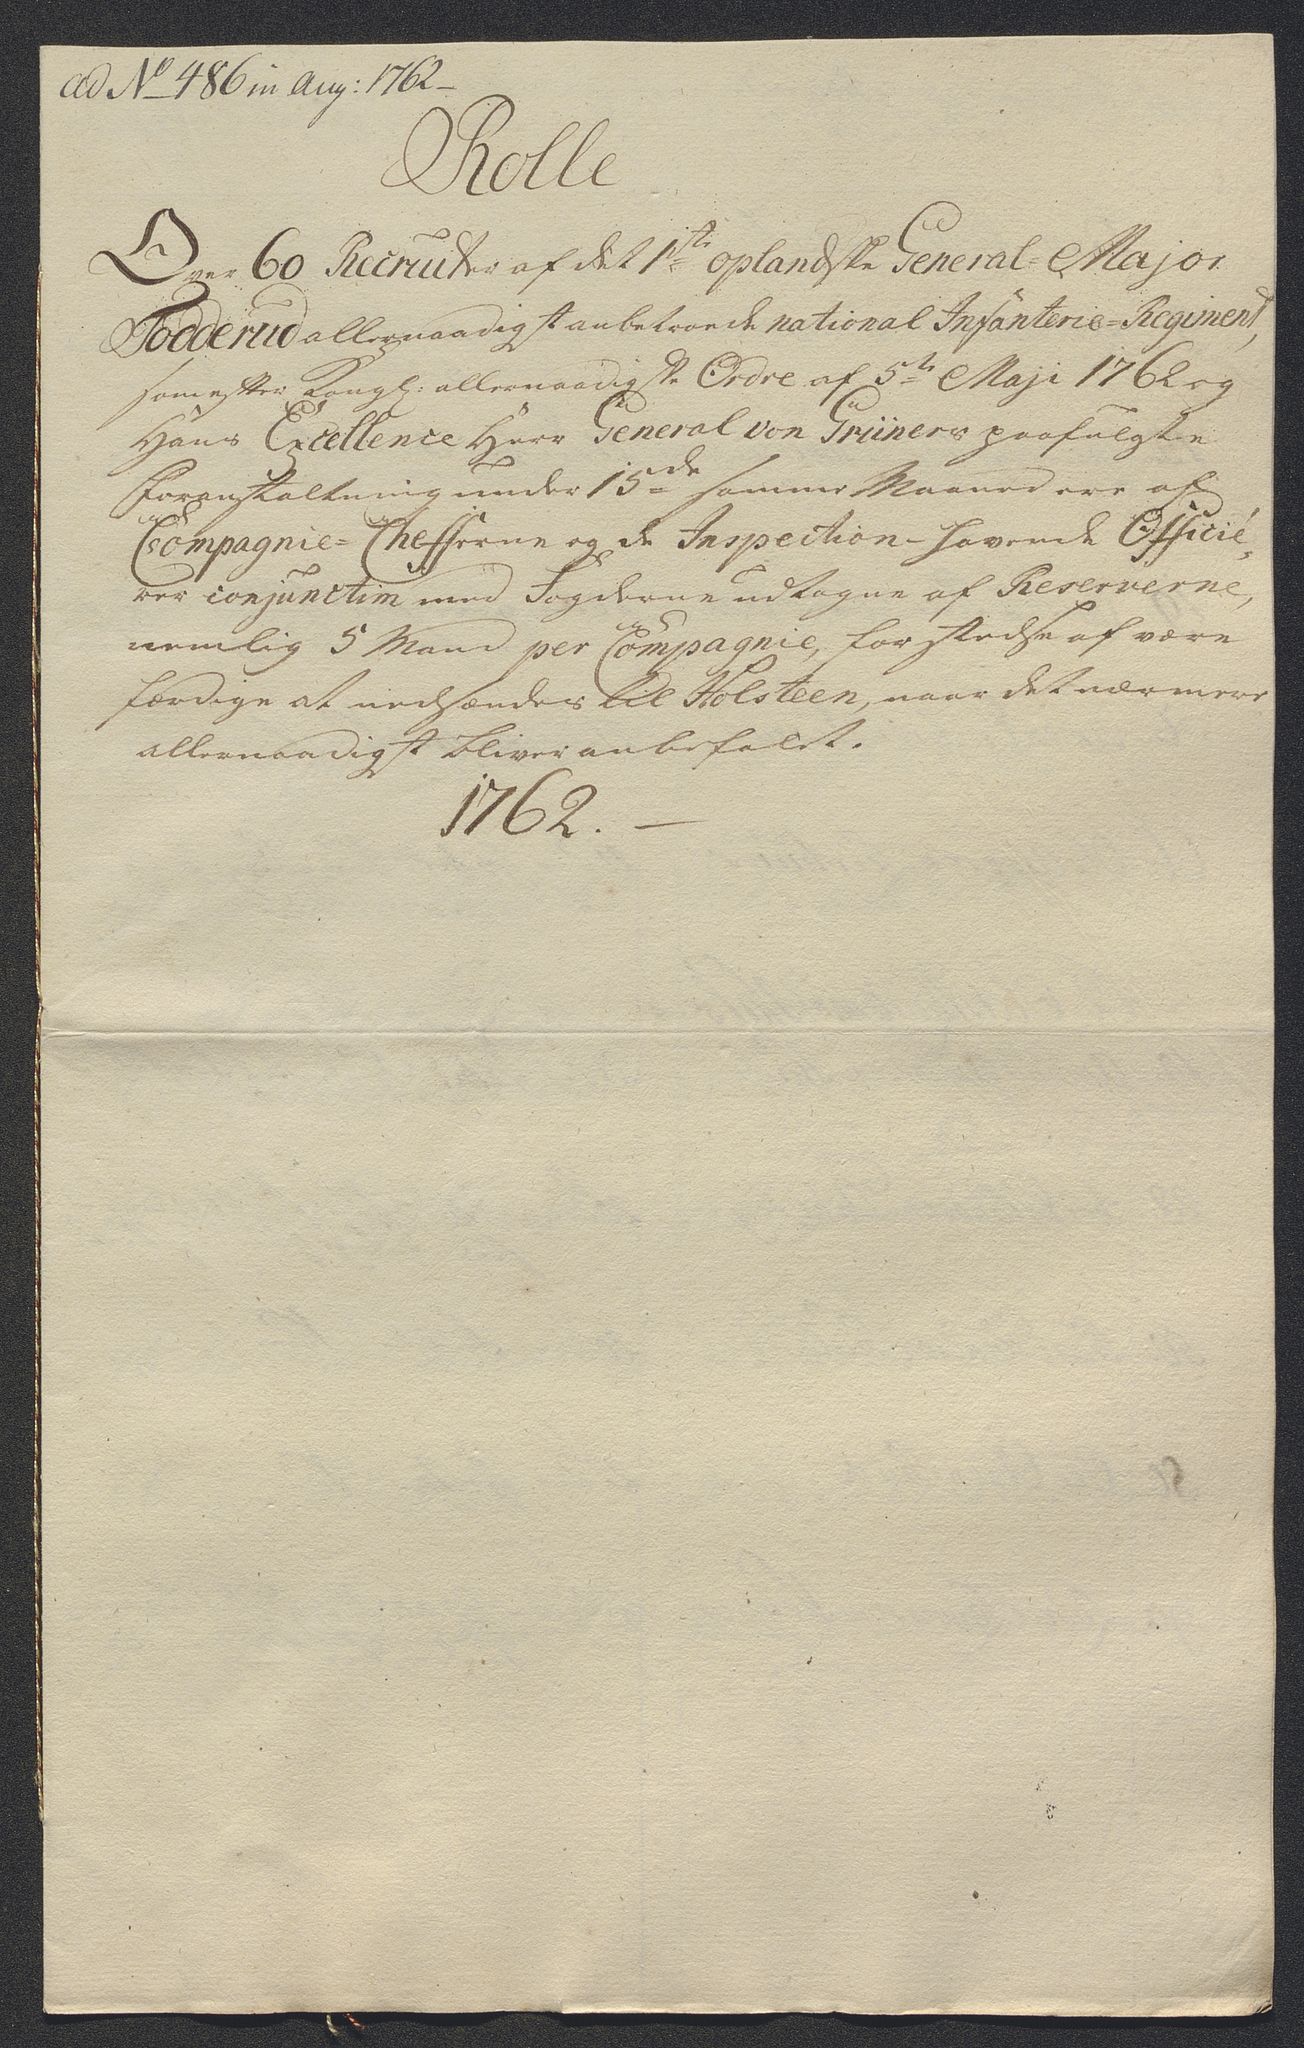 ad No 486 in Aug: 1762 –
Rolle
Over 60 Recruter af det 1ste oplandske General-Major
Todderud allernaadigst anbetroede national Infanterie-Regiment,
som efter Kongl: allernaadigste Ordre af 5te Maji 1762 og
Hans Excellence Herr General von Grüners paafulgte
Foranstaltning under 15de samme Maaned ere af
Compagnie-Chefferne og de Inspection-havende Officié-
rer conjunctim med Fogderne udtagne af Reserverne,
nemlig 5 Mand per Compagnie, for stedse at være
færdige at nedsændes til Holsteen, naar det nærmere
allernaadigst bliver anbefalet.
1762. –